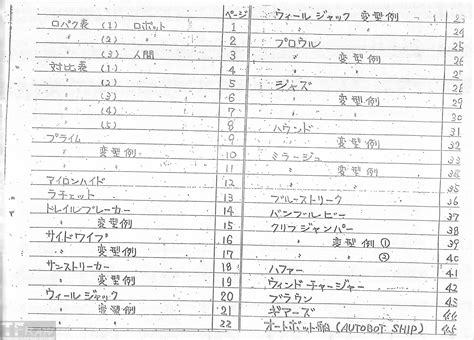 ページ
ロパク表 (1) ロボット 1
〃 (2) 〃 2
〃 (3) 人間 3
対比表 (1) 4
〃 (2) 5
〃 (3) 6
〃 (4) 7
〃 (5) 8
プライム 9
〃 変型例 10
〃 11
アイロンハイド 12
ラチェット 13
トレイルブレーカー 14
〃 変型例 15
サイドワイプ 16
〃 変型例 17
サンストリーカー 18
〃 変型例 19
ウィールジャック 20
〃 変型例 21
〃 22
ウィールジャック 変型例 23
〃 24
プロウル 25
〃 変型例 26
〃 27
ジャズ 28
〃 変型例 29
〃 30
ハウンド 31
〃 変型例 32
ミラージュ 33
〃 変型例 34
〃 35
ブルーストリーク 36
バンブルビー 37
クリフジャンパー 38
〃 変型例 ① 39
〃 〃 ② 40
ハファー 41
ウィンドチャージャー 42
ブラウン 43
ギアーズ 44
オートボット船 (AUTOBOT SHIP) 45